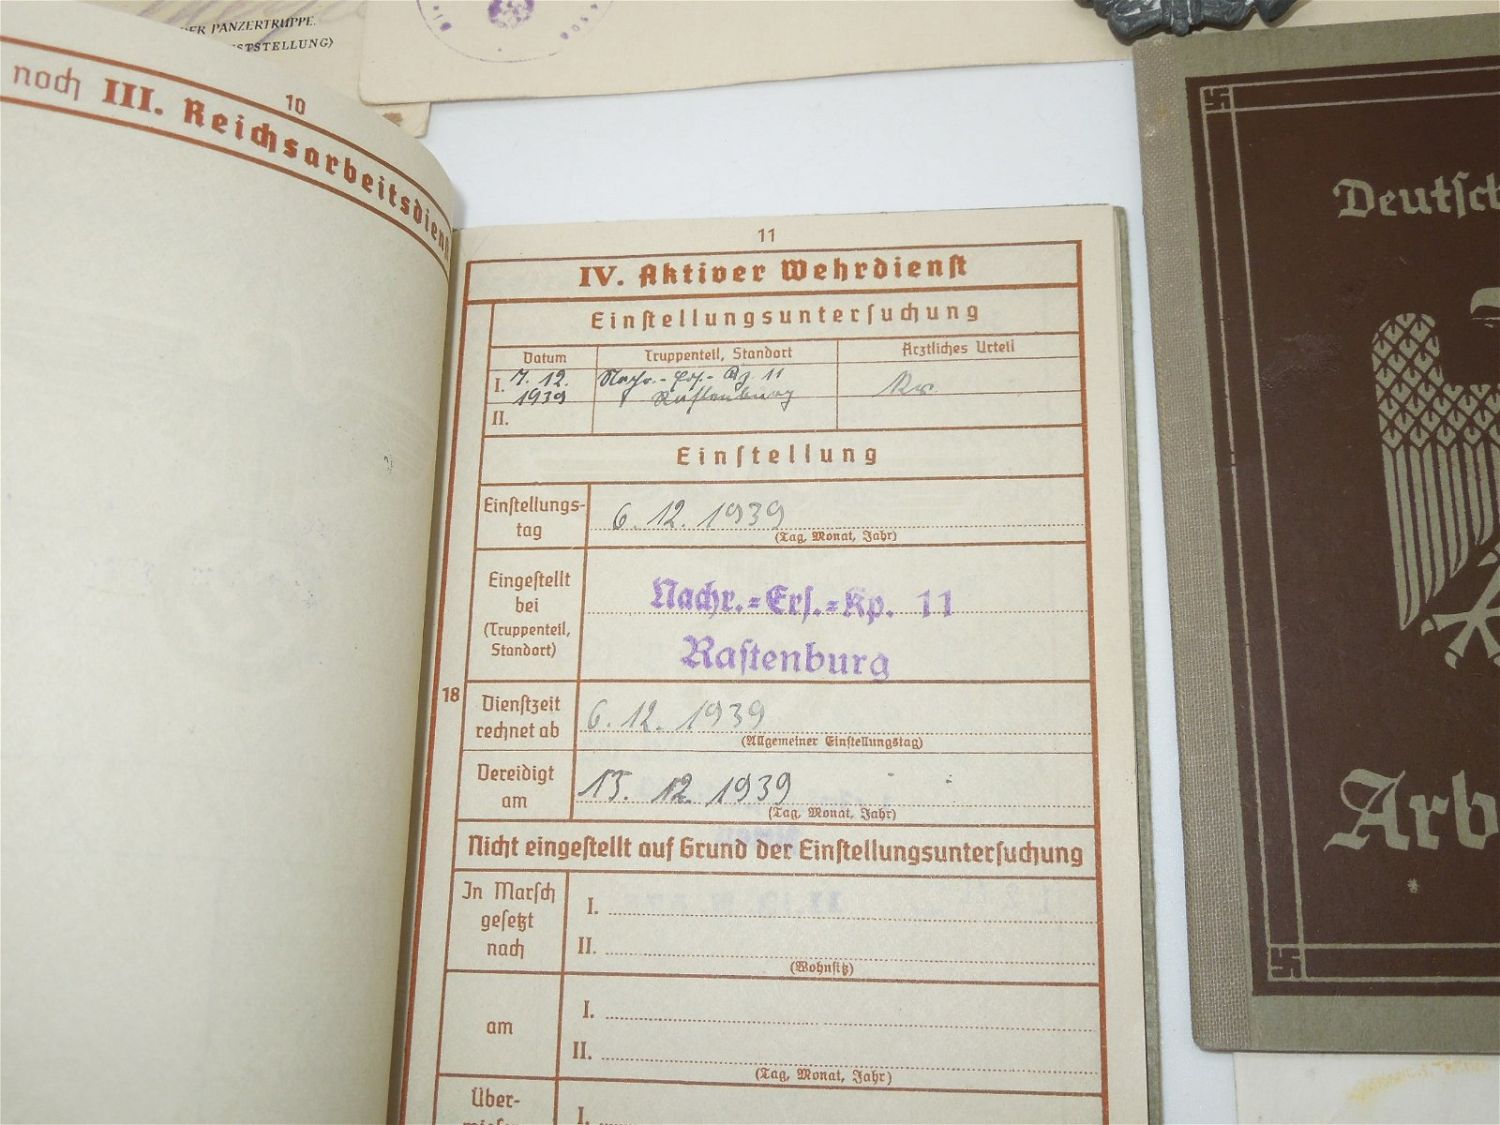 DER PANZERTRUPPE.
10
noch III. Reichsarbeitsdienst
11
IV. Aktiver Wehrdienst
Einstellungsuntersuchung
Datum Truppenteil, Standort Ärztliches Urteil
I. 7. 12. 1939 Nachr.-Ers.-Kp. 11 Rastenburg
II.
Einstellung
Einstellungs-
tag
6. 12. 1939
(Tag, Monat, Jahr)
Eingestellt
bei
(Truppenteil,
Standort)
Nachr.=Ers.=Kp. 11
Rastenburg
18
Dienstzeit
rechnet ab
6. 12. 1939
(Allgemeiner Einstellungstag)
Vereidigt
am
15. 12. 1939
(Tag, Monat, Jahr)
Nicht eingestellt auf Grund der Einstellungsuntersuchung
In Marsch
gesetzt
nach
I.
II.
(Wohnsitz)
am
I.
II.
(Tag, Monat, Jahr)
Über-
I.
Deutsch
Arb